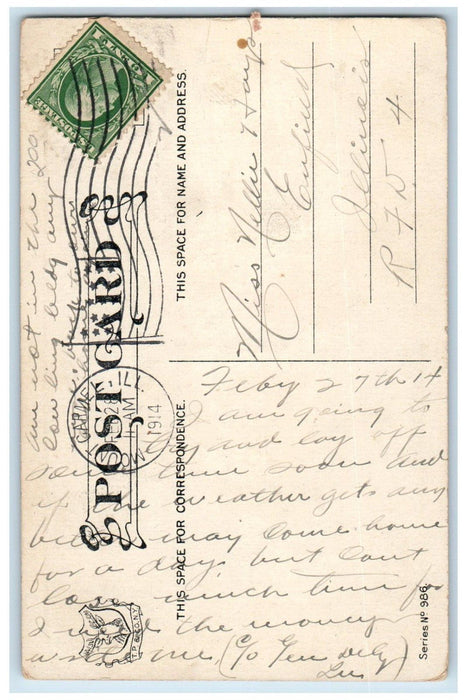 POST CARD
THIS SPACE FOR NAME AND ADDRESS.
THIS SPACE FOR CORRESPONDENCE.
Miss Nellie Hays
Enfield
Illinois
R F D 4
CARMEL ILL.
28
AM
1914
Feby 27th 14
I am going to
try and lay off
some time soon and
if the weather gets any
better may come home
for a day but Cant
lose much time for
I the money
write me (C/o Gen Delty)
am not in the
bowling alley any
T.P. & CO. N.Y.
Series No 986.